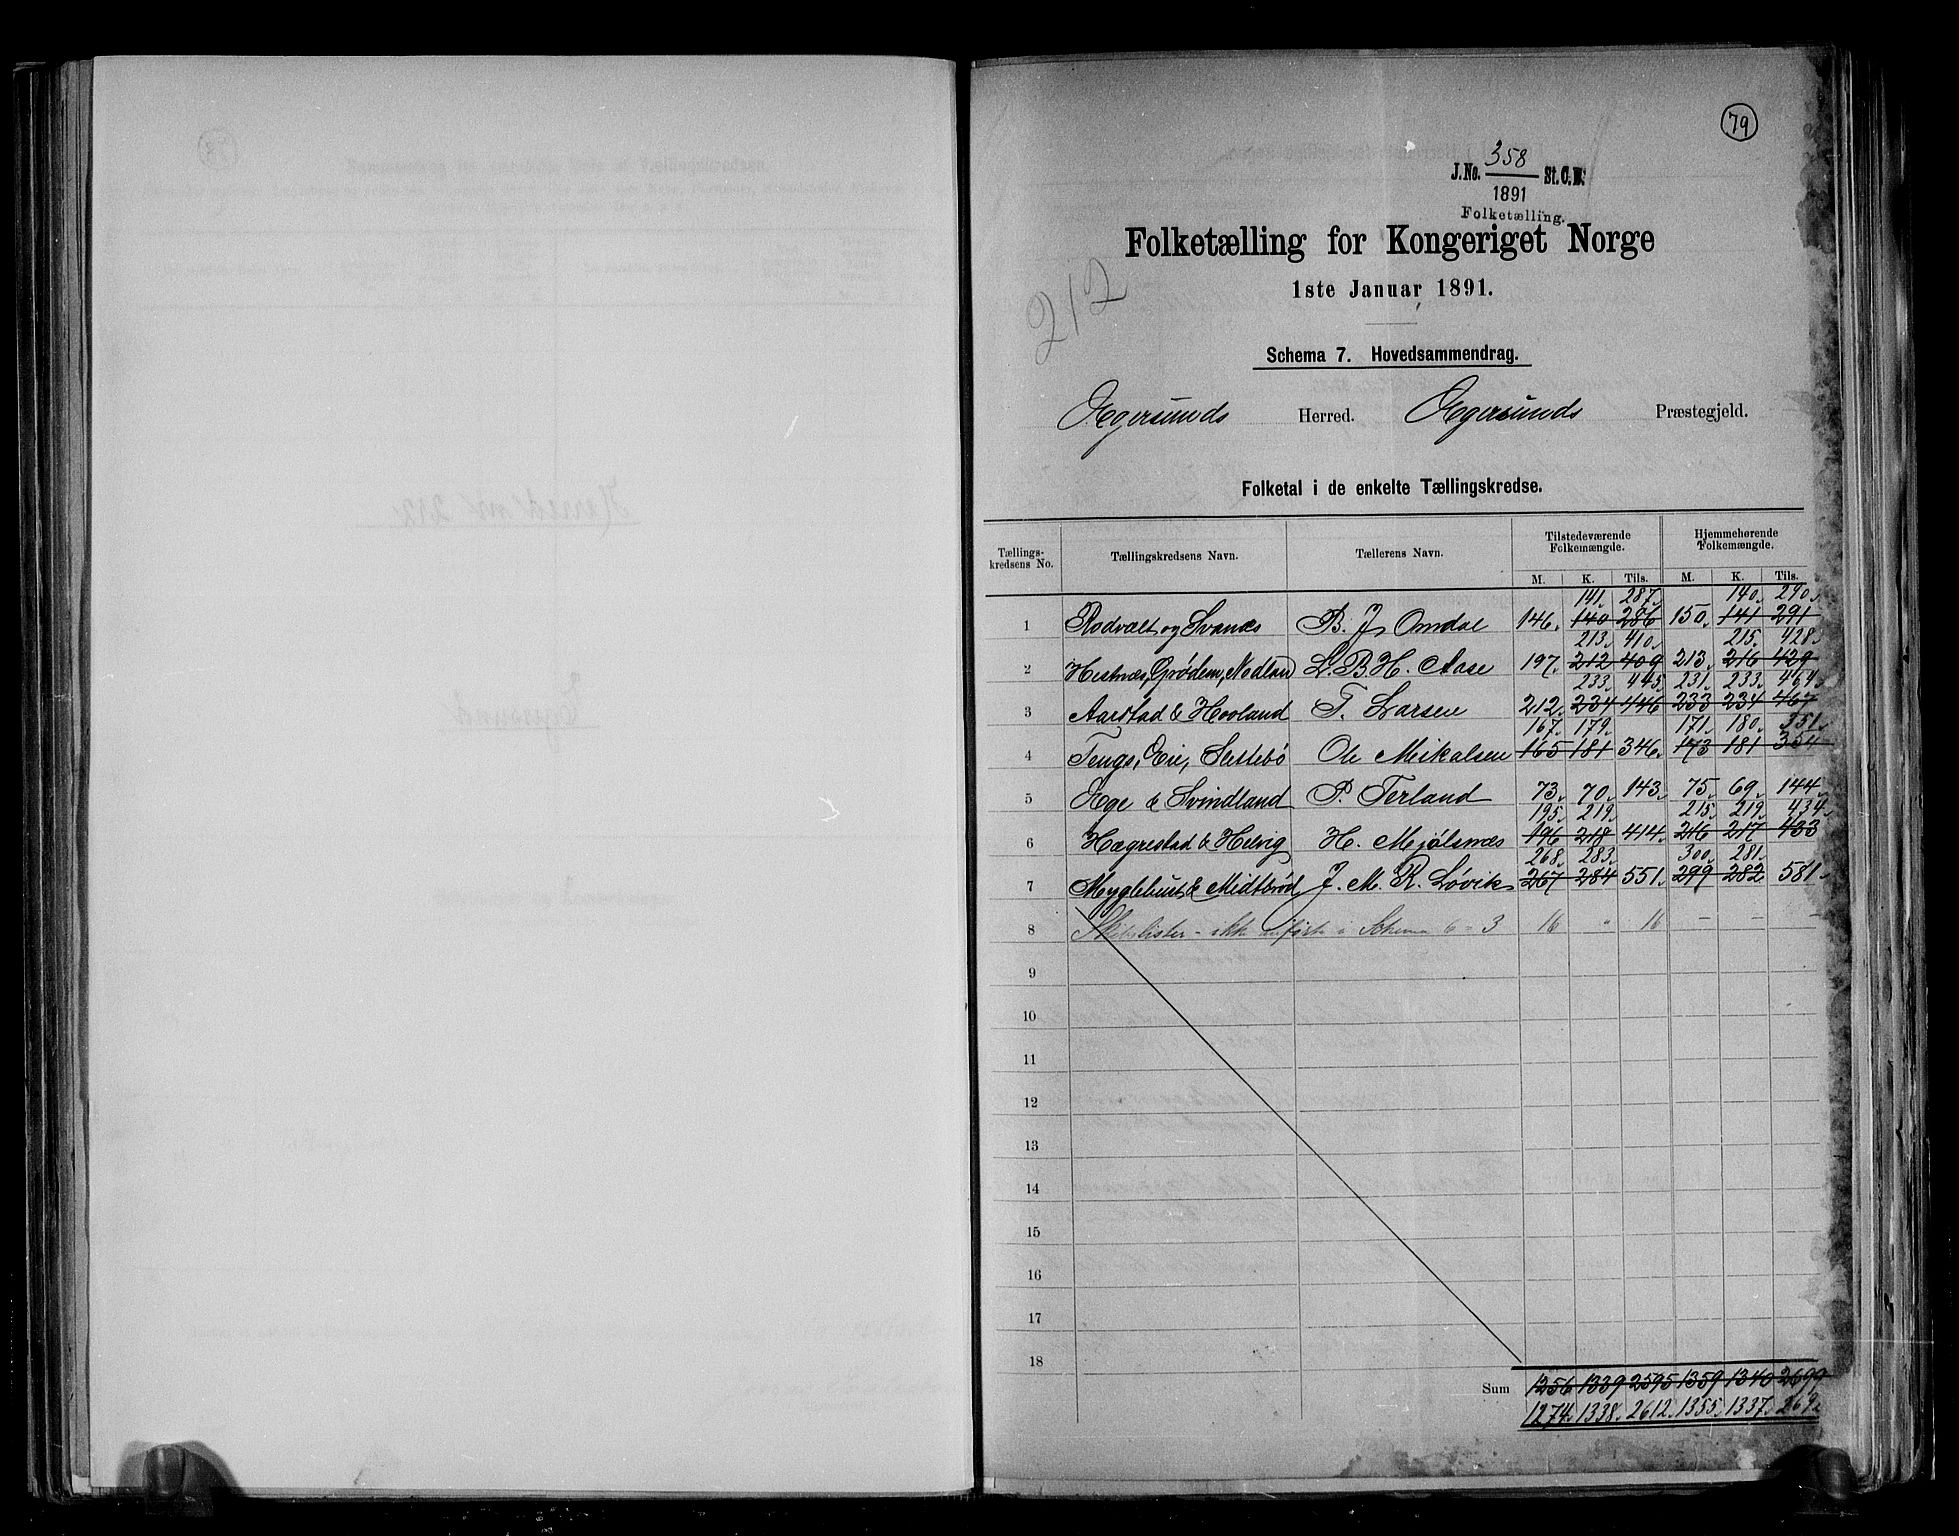 79
J.No. 358 St. C. B.
1891
Folketælling.
Folketælling for Kongeriget Norge
1ste Januar 1891.
212
Schema 7. Hovedsammendrag.
Egersunds Herred. Egersunds Præstegjeld.
Folketal i de enkelte Tællingskredse.
Tællings-kredsens No. Tællingskredsens Navn. Tællerens Navn. Tilstedeværende Folkemængde. Hjemmehørende Folkemængde.
M. K. Tils. M. K. Tils.
141. 287. 140. 290.
1 Rodvælt og Svanæs B. J. Omdal 146. 140 286 150. 141 291
213. 410. 215. 428.
2 Hestnæs, Grødem, Nodland L. B. H. Aase 197. 212 409 213. 216 429
233. 445. 231. 233. 464.
3 Aarstad & Hovland T. Larsen 212. 234 446 233 234 467
167. 179. 171. 180. 351.
4 Tengs, Eie, Slettebö Ole Mikalsen 165 181 346. 173 181 354
5 Ege & Svindland P. Terland 73. 70. 143. 75. 69. 144.
195. 219. 215. 219. 434.
6 Hægrestad & Helvig H. Mjølsnæs 196 218 414. 216 217 433
268. 283. 300. 281.
7 Myglebust & Midtbrød J. M. R. Løvik 267 284 551. 299 282 581.
8 Skibslister - ikke anførte i Schema 6 = 3 16 " 16 - - -
9
10
11
12
13
14
15
16
17
18
Sum 1256 1339 2595 1359 1340 2699
1274. 1338. 2612. 1355. 1337. 269